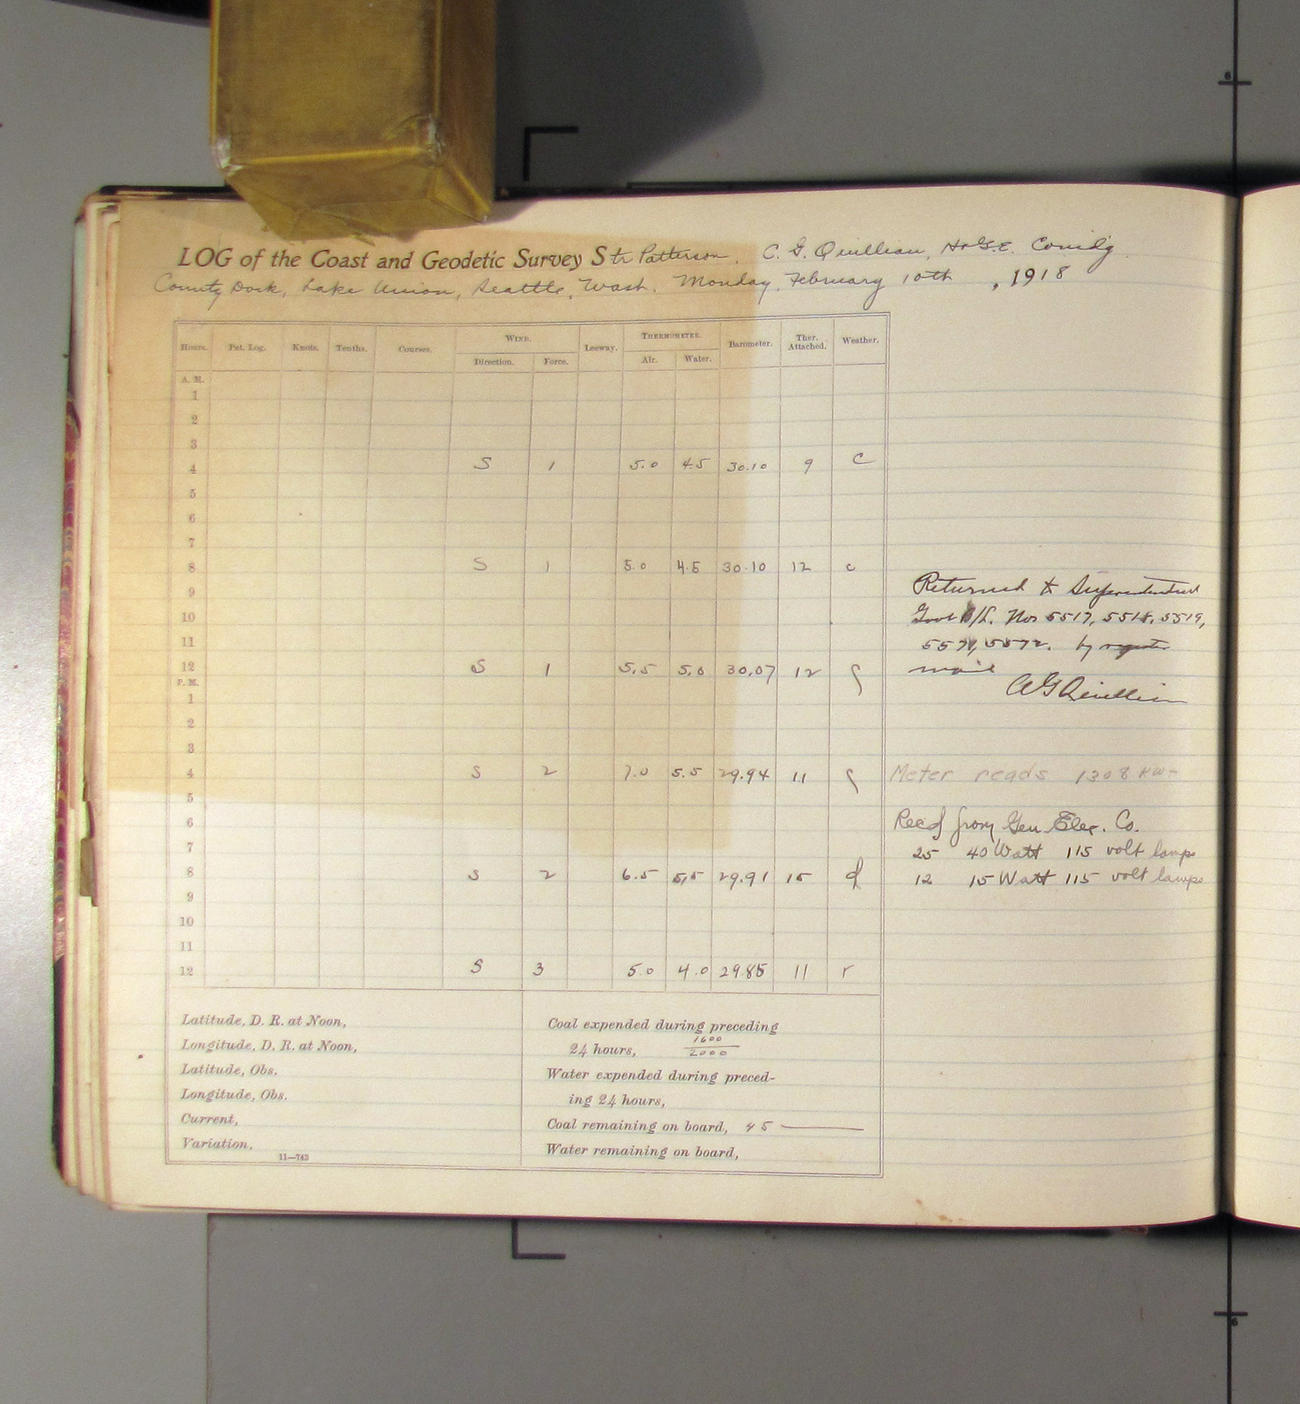 LOG of the Coast and Geodetic Survey Str Patterson. C. G. Quillian, H. & G. E. Comd'g.
County Dock, Lake Union, Seattle, Wash. Monday, February 10th, 1918
Hours. Pat. Log. Knots. Tenths. Courses. WIND. Leeway. THERMOMETER. Barometer. Ther. Attached. Weather.
Direction. Force. Air. Water.
A. M.
1
2
3
4 S 1 5.0 4.5 30.10 9 c
5
6
7
8 S 1 5.0 4.5 30.10 12 c
9
10
11
12 S 1 5.5 5.0 30.07 12
P. M.
1
2
3
4 S 2 7.0 5.5 29.94 11
5
6
7
8 S 2 6.5 5.5 29.91 15 d
9
10
11
12 S 3 5.0 4.0 29.85 11 r
Returned to Superintendent
Govt B/L. Nos 5517, 5518, 5519,
5572. by
mail
C G Quillian
Meter reads 1308 KW-
Recd from Gen Elec. Co.
25 40 Watt 115 volt lamps
12 15 Watt 115 volt lamps
Latitude, D. R. at Noon,
Longitude, D. R. at Noon,
Latitude, Obs.
Longitude, Obs.
Current,
Variation,
11—743
Coal expended during preceding
24 hours, 1600/2000
Water expended during preced-
ing 24 hours,
Coal remaining on board, 45
Water remaining on board,
6
6